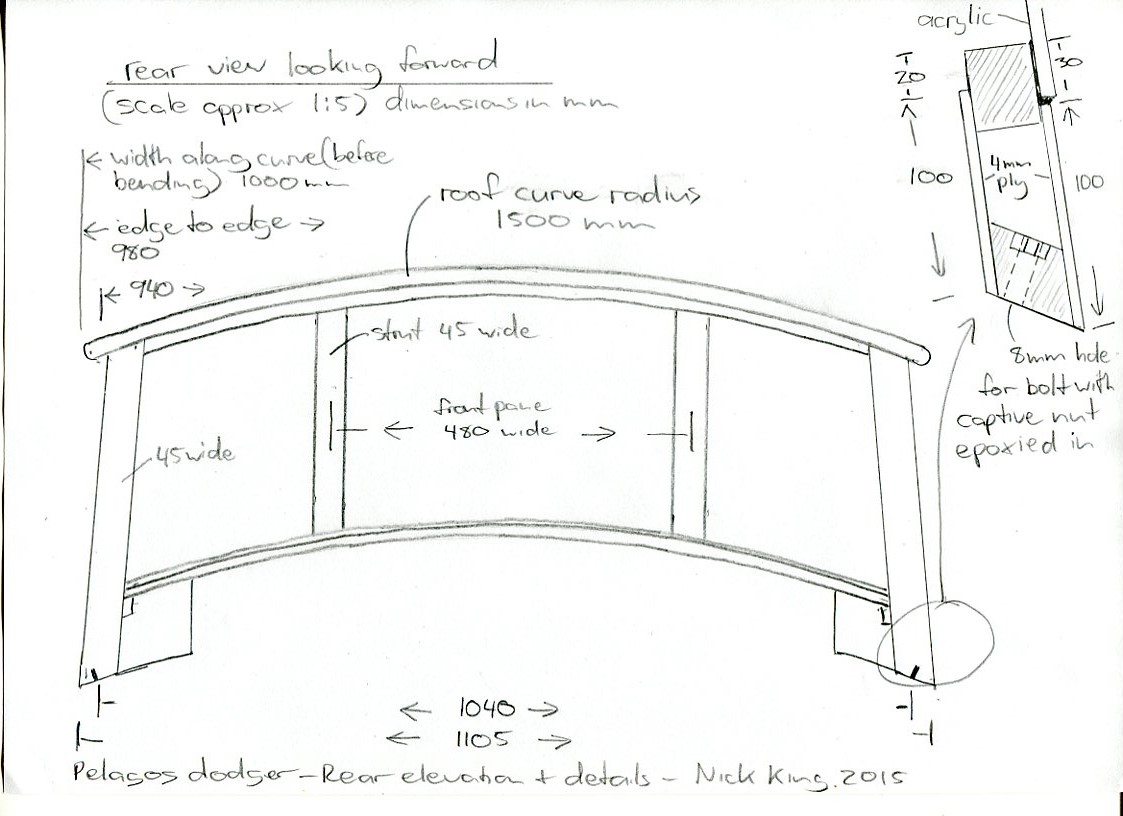 rear view looking forward
(scale approx 1:5) dimensions in mm
← width along curve (before
bending) 1000mm
← edge to edge →
980
← 940 →
roof curve radius
1500 mm
strut 45 wide
front pane
← 480 wide →
45 wide
acrylic
20
30
100
4mm
ply
100
8mm hole
for bolt with
captive nut
epoxied in
← 1040 →
← 1105 →
Pelagos dodger - Rear elevation + details - Nick King. 2015